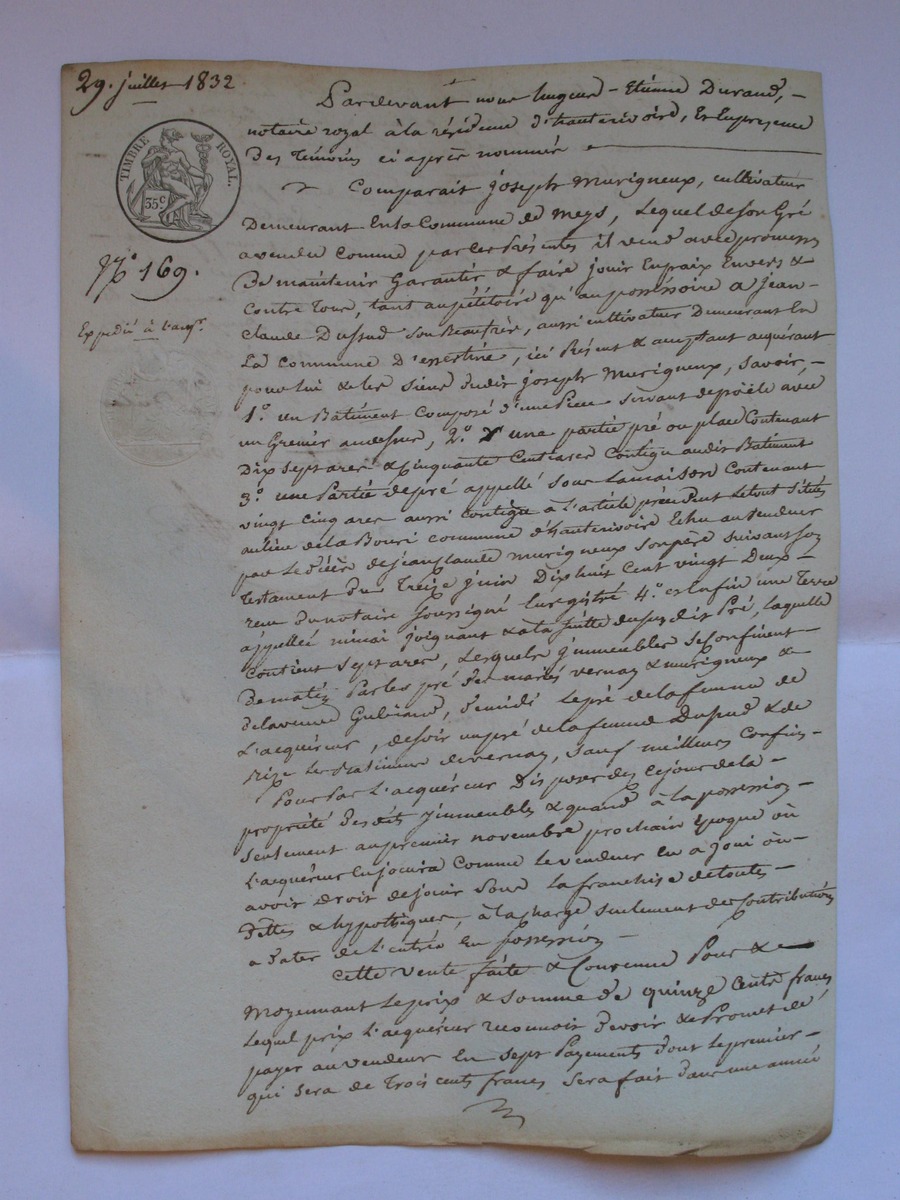 29. juillet 1832
TIMBRE ROYAL.
35c
No 169.
Expédié à l'acqr.
Pardevant nous Etienne Durand,
notaire royal à la résidence d'hauterivoire, En presence
Des Témoins ci après nommés
Comparait joseph Murigneux, cultivateur
Demeurant En la Commune de Meys, Lequel de son Gré
a vendu comme par ces Présentes il vend avec promesse
De maintenir Garantir & faire jouir En paix Envers &
Contre Tous, tant au pétitoire qu'au possessoire a jean-
claude Dussud son Beaufrère, aussi cultivateur Demeurant En
La commune d'essertine, ici Présent & acceptant acquérant
pour lui & les siens dudit joseph Murigneux, savoir,
1.o un Bâtiment composé d'une Piece servant de poële avec
un Grenier audessus, 2.o une partie pré ou place Contenant
Dix sept ares & Cinquante Centiares contigu audit Bâtiment
3.o une Partie de pré appellé sous la maison contenant
vingt cinq ares aussi contigüe à l'article précédent Le tout situés
au lieu de la Bouri commune d'hauterivoire Echu au vendeur
par Le décès de jean claude Murigneux son père suivant son
Testament du Treize juin Dix huit Cent vingt Deux
reçu du notaire soussigné Enregistré 4.o et Enfin une Terre
appellée joignant & à la suitte du susdit Pré, laquelle
contient sept ares, Lesquels jmmeubles se Confinent
De matin Par les pré des mariés vernay & murigneux &
De la veuve de midi le pré de la femme de
L'acquéreur, de soir un pré de la femme Dussud & de
Bize Les Batiments de vernay, sauf meilleurs Confins
Pour Par L'acquéreur Disposer dès ce jour de la
propriété Desdits jmmeubles & quand à la possession
seulement au premier novembre prochain Epoque où
L'acquéreur En jouira Comme le vendeur En a joui ou
avoir droit de jouir sous la franchise de toutes
Dettes & hypothèques, à la charge seulement des Contributions
a Dater de l'entrée En Possession
Cette vente faite & Convenue Pour &
Moyennant Le prix & somme de quinze Cents francs
Lequel prix L'acquéreur reconnoit devoir & Promet de
payer au vendeur En sept Payements dont le premier
qui sera de Trois cents francs sera fait dans une année